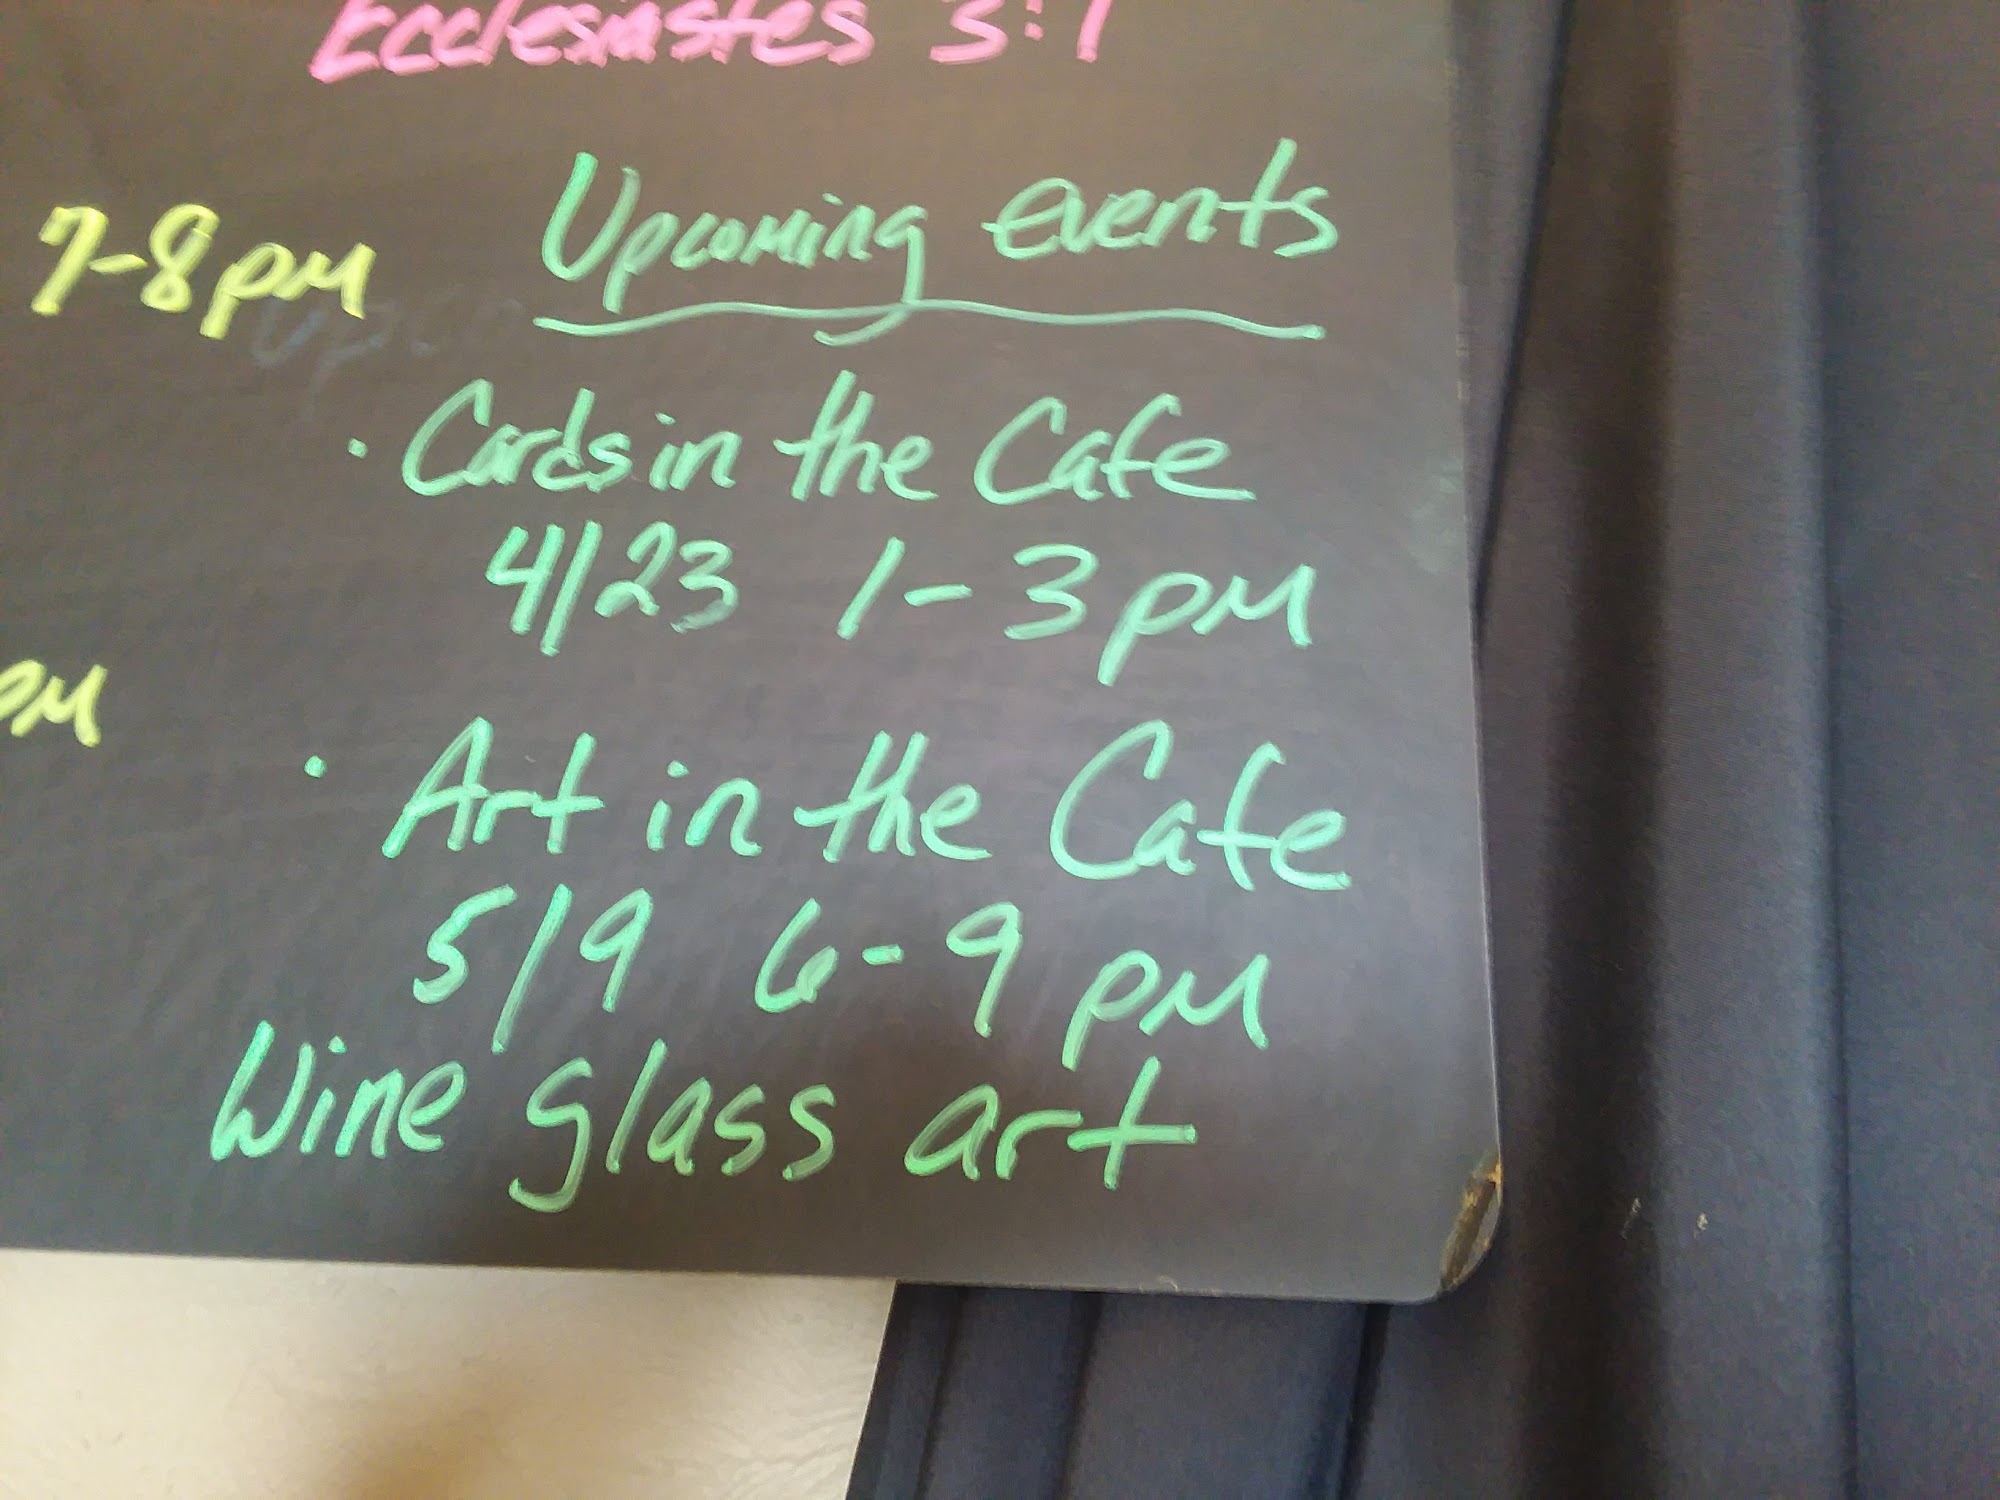 Ecclesiastes 3:1
7-8pm
Upcoming events
• Cards in the Cafe
4/23 1-3pm
pm
• Art in the Cafe
5/9 6-9 pm
Wine glass art